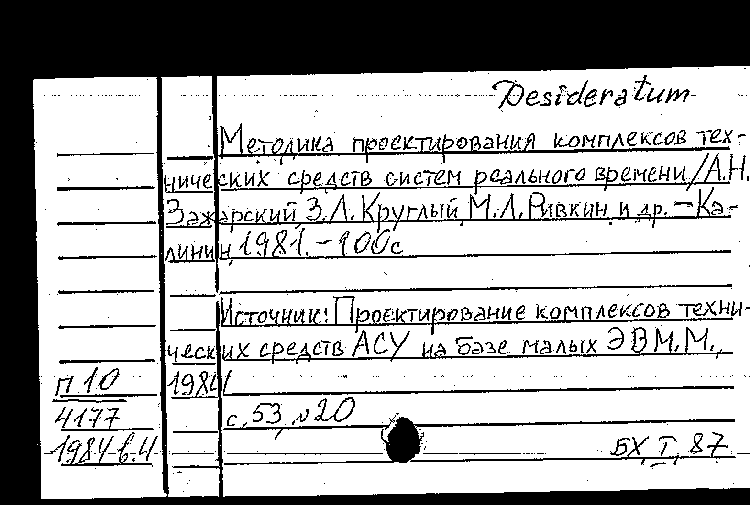 Desideratum
Методика проектирования комплексов тех-
нических средств систем реального времени/А.Н.
Зажарский, З.Л. Круглый, М.Л. Ривкин и др. – Ка-
линин, 1981. – 100с
Источник: Проектирование комплексов техни-
ческих средств АСУ на базе малых ЭВМ. М.,
п 10 1984
4177 с. 53, №20
1984 в.4 БХ, I, 87